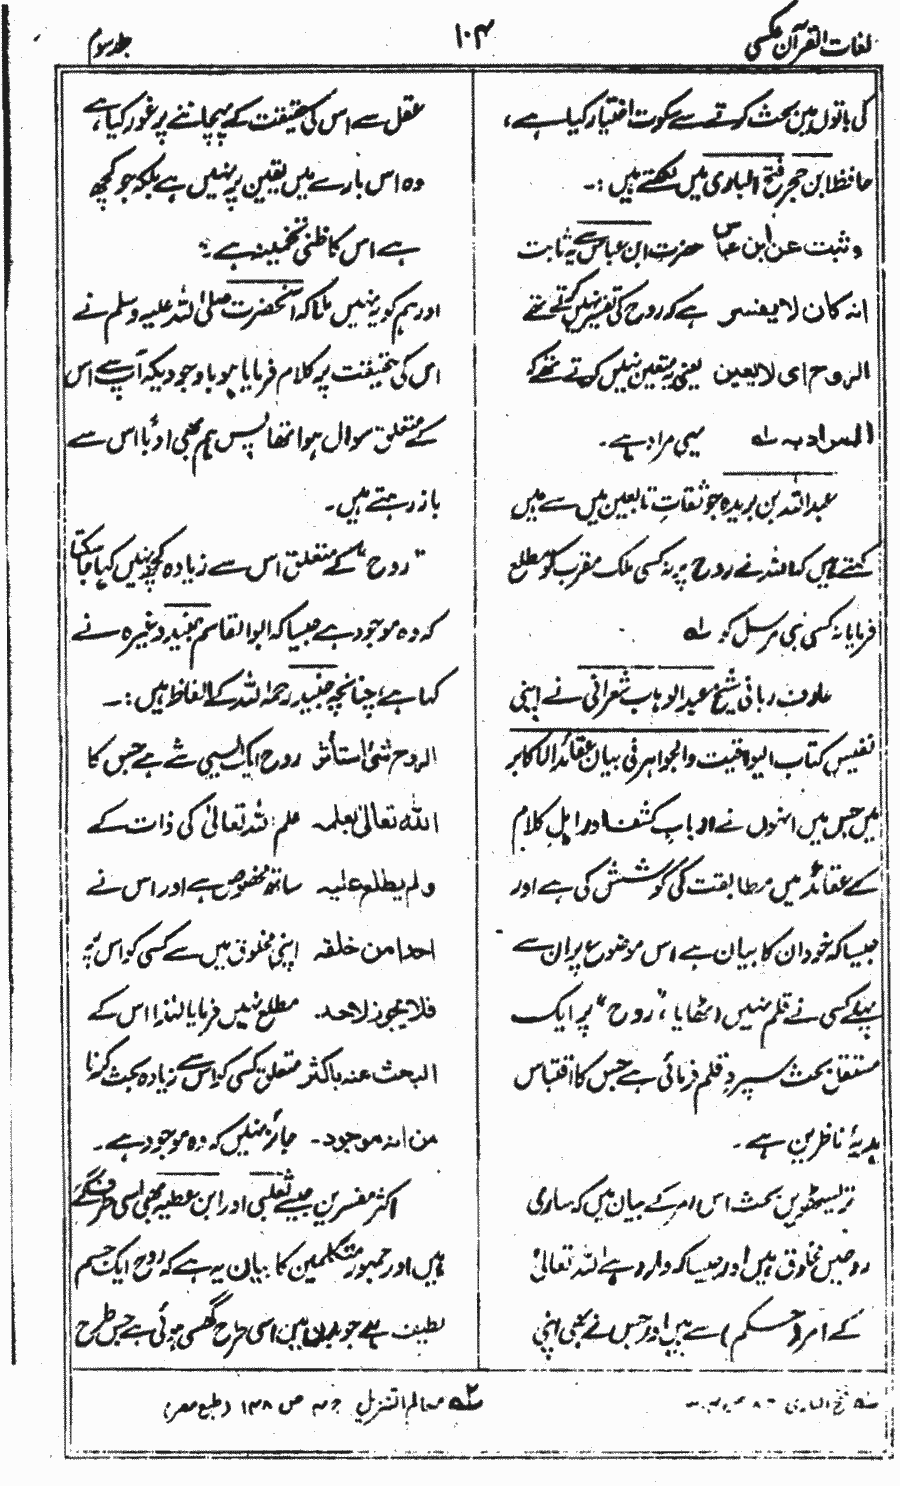 لغات القرآن عکسی
۱۰۴
جلد سوم
کی باتوں میں بحث کرتے سے سکوت اختیار کیا ہے،
حافظ ابن حجر فتح الباری میں لکھتے ہیں :-
وثبت عن ابن عباس حضرت ابن عباس سے یہ ثابت
انہ کان لا یفسر ہے کہ روح کی تفسیر نہیں کرتے تھے
الروح ای لا یعین یعنی یہ متعین نہیں کرتے تھے کہ
المراد بہ لہ یہی مراد ہے۔
عبداللہ بن بریدہ جو ثقات تابعین میں سے ہیں
کہتے ہیں کہ اللہ نے روح پر نہ کسی ملک مقرب کو مطلع
فرمایا نہ کسی نبی مرسل کو لہ
عارف ربانی شیخ عبدالوہاب شعرانی نے اپنی
نفیس کتاب الیواقیت والجواہر فی بیان عقائد الاکابر
میں جس میں انہوں نے ارباب کشف اور اہل کلام
کے عقائد میں مطابقت کی کوشش کی ہے اور
جیسا کہ خود ان کا بیان ہے اس موضوع پر ان سے
پہلے کسی نے قلم نہیں اٹھایا، "روح" پر ایک
مستقل بحث سپرد قلم فرمائی ہے جس کا اقتباس
ہدیۂ ناظرین ہے۔
تریسٹھویں بحث اس امر کے بیان میں کہ ساری
روحیں مخلوق ہیں اور جیسا کہ وارد ہے اللہ تعالیٰ
کے امر (حکم) سے ہیں اور جس نے بھی اپنی
عقل سے اس کی حقیقت کے پہچاننے پر غور کیا ہے،
وہ اس بارے میں یقین پر نہیں ہے بلکہ جو کچھ
ہے اس کا ظنی تخمینہ ہے
اور ہم کو یہ نہیں ملتا کہ آنحضرت صلی اللہ علیہ وسلم نے
اس کی حقیقت پر کلام فرمایا ہو باوجودیکہ آپ سے اس
کے متعلق سوال ہوا تھا پس ہم بھی ادبًا اس سے
باز رہتے ہیں۔
"روح" کے متعلق اس سے زیادہ کچھ نہیں کہا جا سکتا
کہ وہ موجود ہے جیسا کہ ابوالقاسم جنید وغیرہ نے
کہا ہے، چنانچہ جنید رحمہ اللہ کے الفاظ ہیں :-
الروح شیٔ استأثر روح ایک ایسی شے ہے جس کا
اللہ تعالیٰ بعلمہ علم اللہ تعالیٰ کی ذات کے
ولم یطلع علیہ ساتھ مخصوص ہے اور اس نے
احدا من خلقہ اپنی مخلوق میں سے کسی کو اس پر
فلا یجوز لاحد۔ مطلع نہیں فرمایا لہٰذا اس کے
البحث عنہ باکثر متعلق کسی کو اس سے زیادہ بحث کرنا
من انہ موجود۔ جائز نہیں کہ وہ موجود ہے۔
اکثر مفسرین جیسے ثعلبی اور ابن عطیہ بھی اسی طرف گئے
ہیں اور جمہور متکلمین کا بیان یہ ہے کہ روح ایک جسم
لطیف ہے جو بدن میں اسی طرح گھسی ہوئی ہے جس طرح
لہ فتح الباری ج ۸
لہ معالم التنزیل ج ۴ ص ۱۴۸ (طبع مصر)